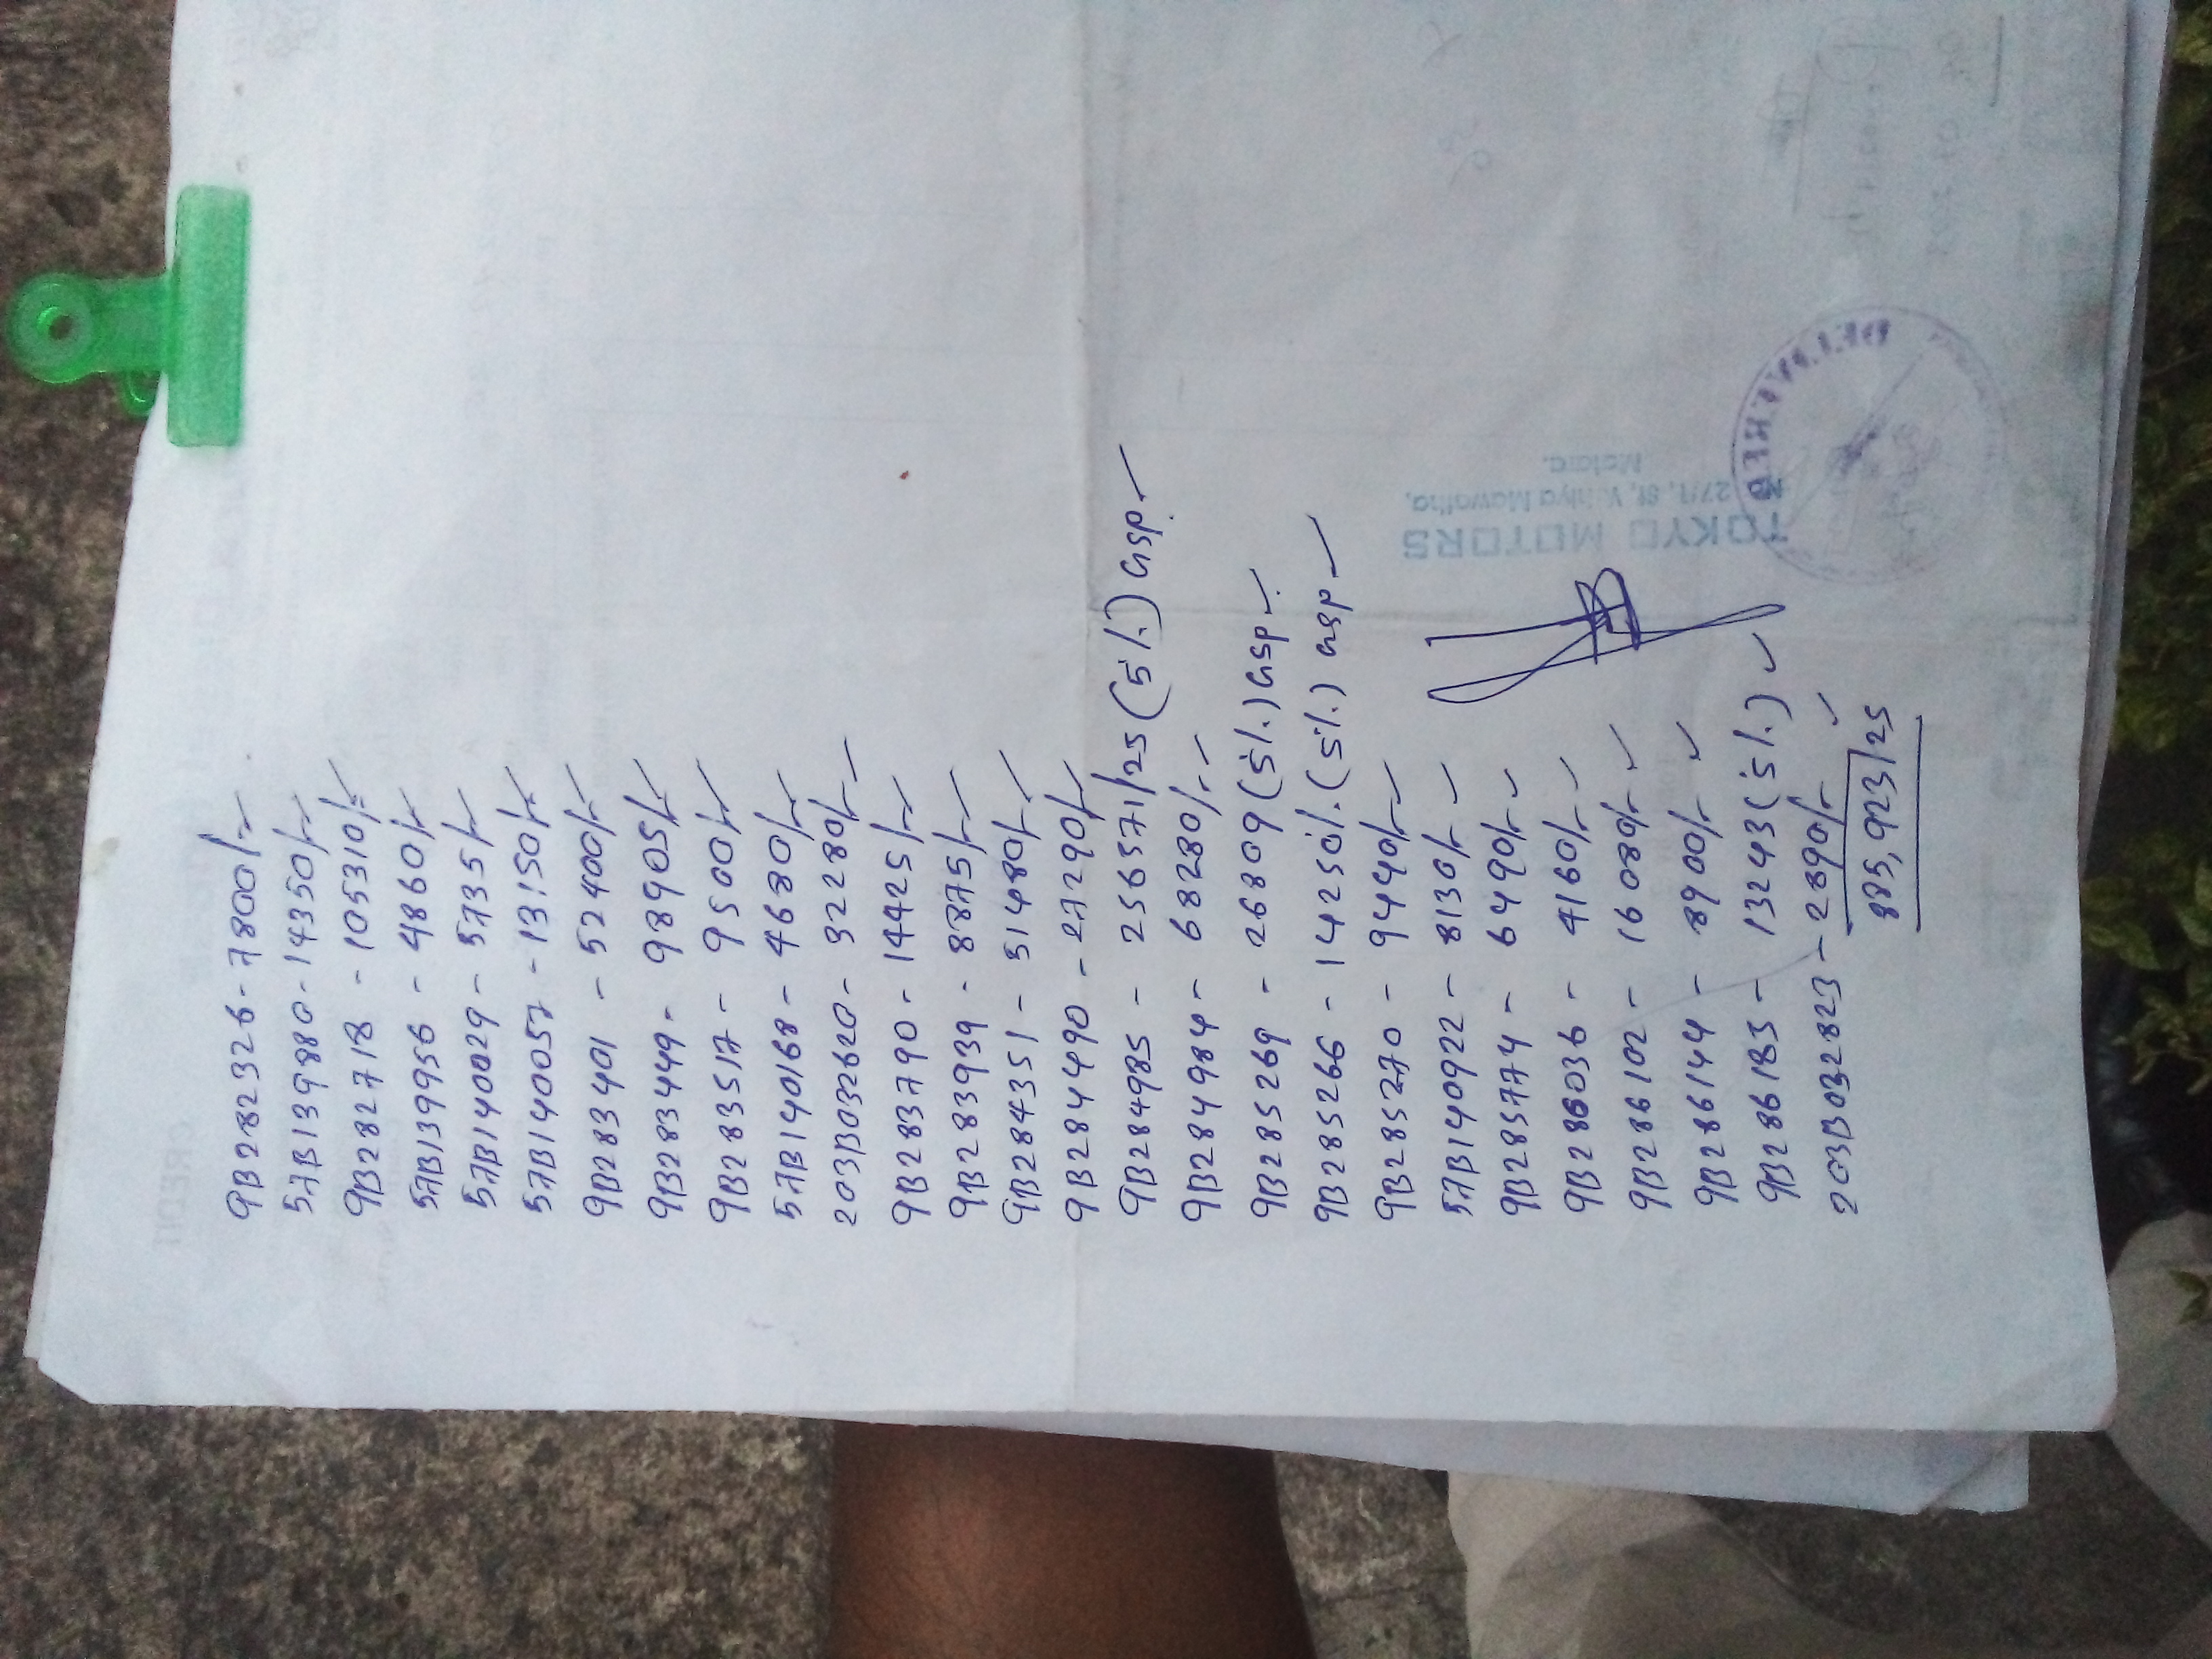 9B282326 - 7800/-
57B139880 - 14350/-
9B282718 - 105310/-
57B139956 - 4860/-
57B140029 - 5735/-
57B140057 - 13150/-
9B283401 - 52400/-
9B283449 - 98905/-
9B283517 - 9500/-
57B140168 - 4680/-
203B032620 - 32280/-
9B283790 - 14425/-
9B283939 - 8875/-
9B284351 - 51480/-
9B284490 - 27290/-
9B284985 - 256571/25 (5%) GSP
9B284984 - 68280/-
9B285269 - 26809 (5%) GSP
9B285266 - 14250/. (5%) GSP
9B285270 - 9440/-
57B140922 - 8130/-
9B285774 - 6490/-
9B286036 - 4160/-
9B286102 - 16080/-
9B286144 - 8900/-
9B286185 - 13243 (5%)
203B032823 - 2890/-
885,923/25
TOKYO MOTORS
27/1, St, Mawatha,